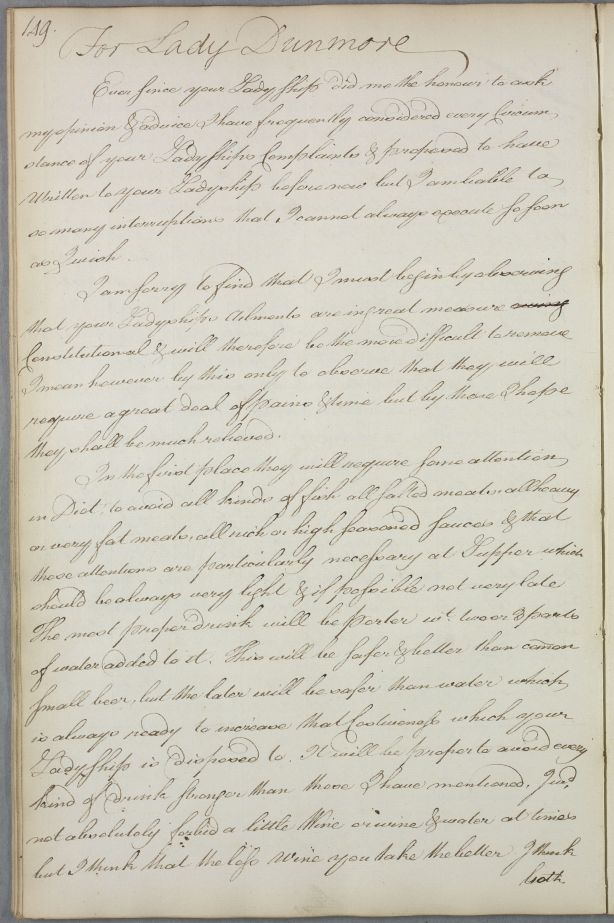 149.
For Lady Dunmore
Ever since your Ladyship did me the honour to ask
my opinion & advice I have frequently considered every Circum
stance of your Ladyships Complaints & proposed to have
Written to your Ladyship before now but I am liable to
so many interruptions that I cannot always execute so soon
as I wish.
I am sorry to find that I must begin by observing
that your Ladyships Ailments are in great measure owing
Constitutional & will therefore be the more difficult to remove
I mean however by this only to observe that they will
require a great deal of pains & time but by these I hope
they shall be much relieved.
In the first place they will require some attention
in Diet; to avoid all kinds of fish all salted meats all heavy
or very fat meats, all rich or high seasoned sauces & that
these attentions are particularly necessary at Supper which
should be always very light & if possible not very late
The most proper drink will be porter wt. two or 3 parts
of water added to it. This will be safer & better than comon
small beer, but the later will be safer than water which
is always ready to increase that Costiveness which your
Ladyship is disposed to. It will be proper to avoid every
kind of drink stronger than these I have mentioned. I wd.
not absolutely forbid a little Wine or wine & water at times
but I think that the less Wine you take the better I think
both